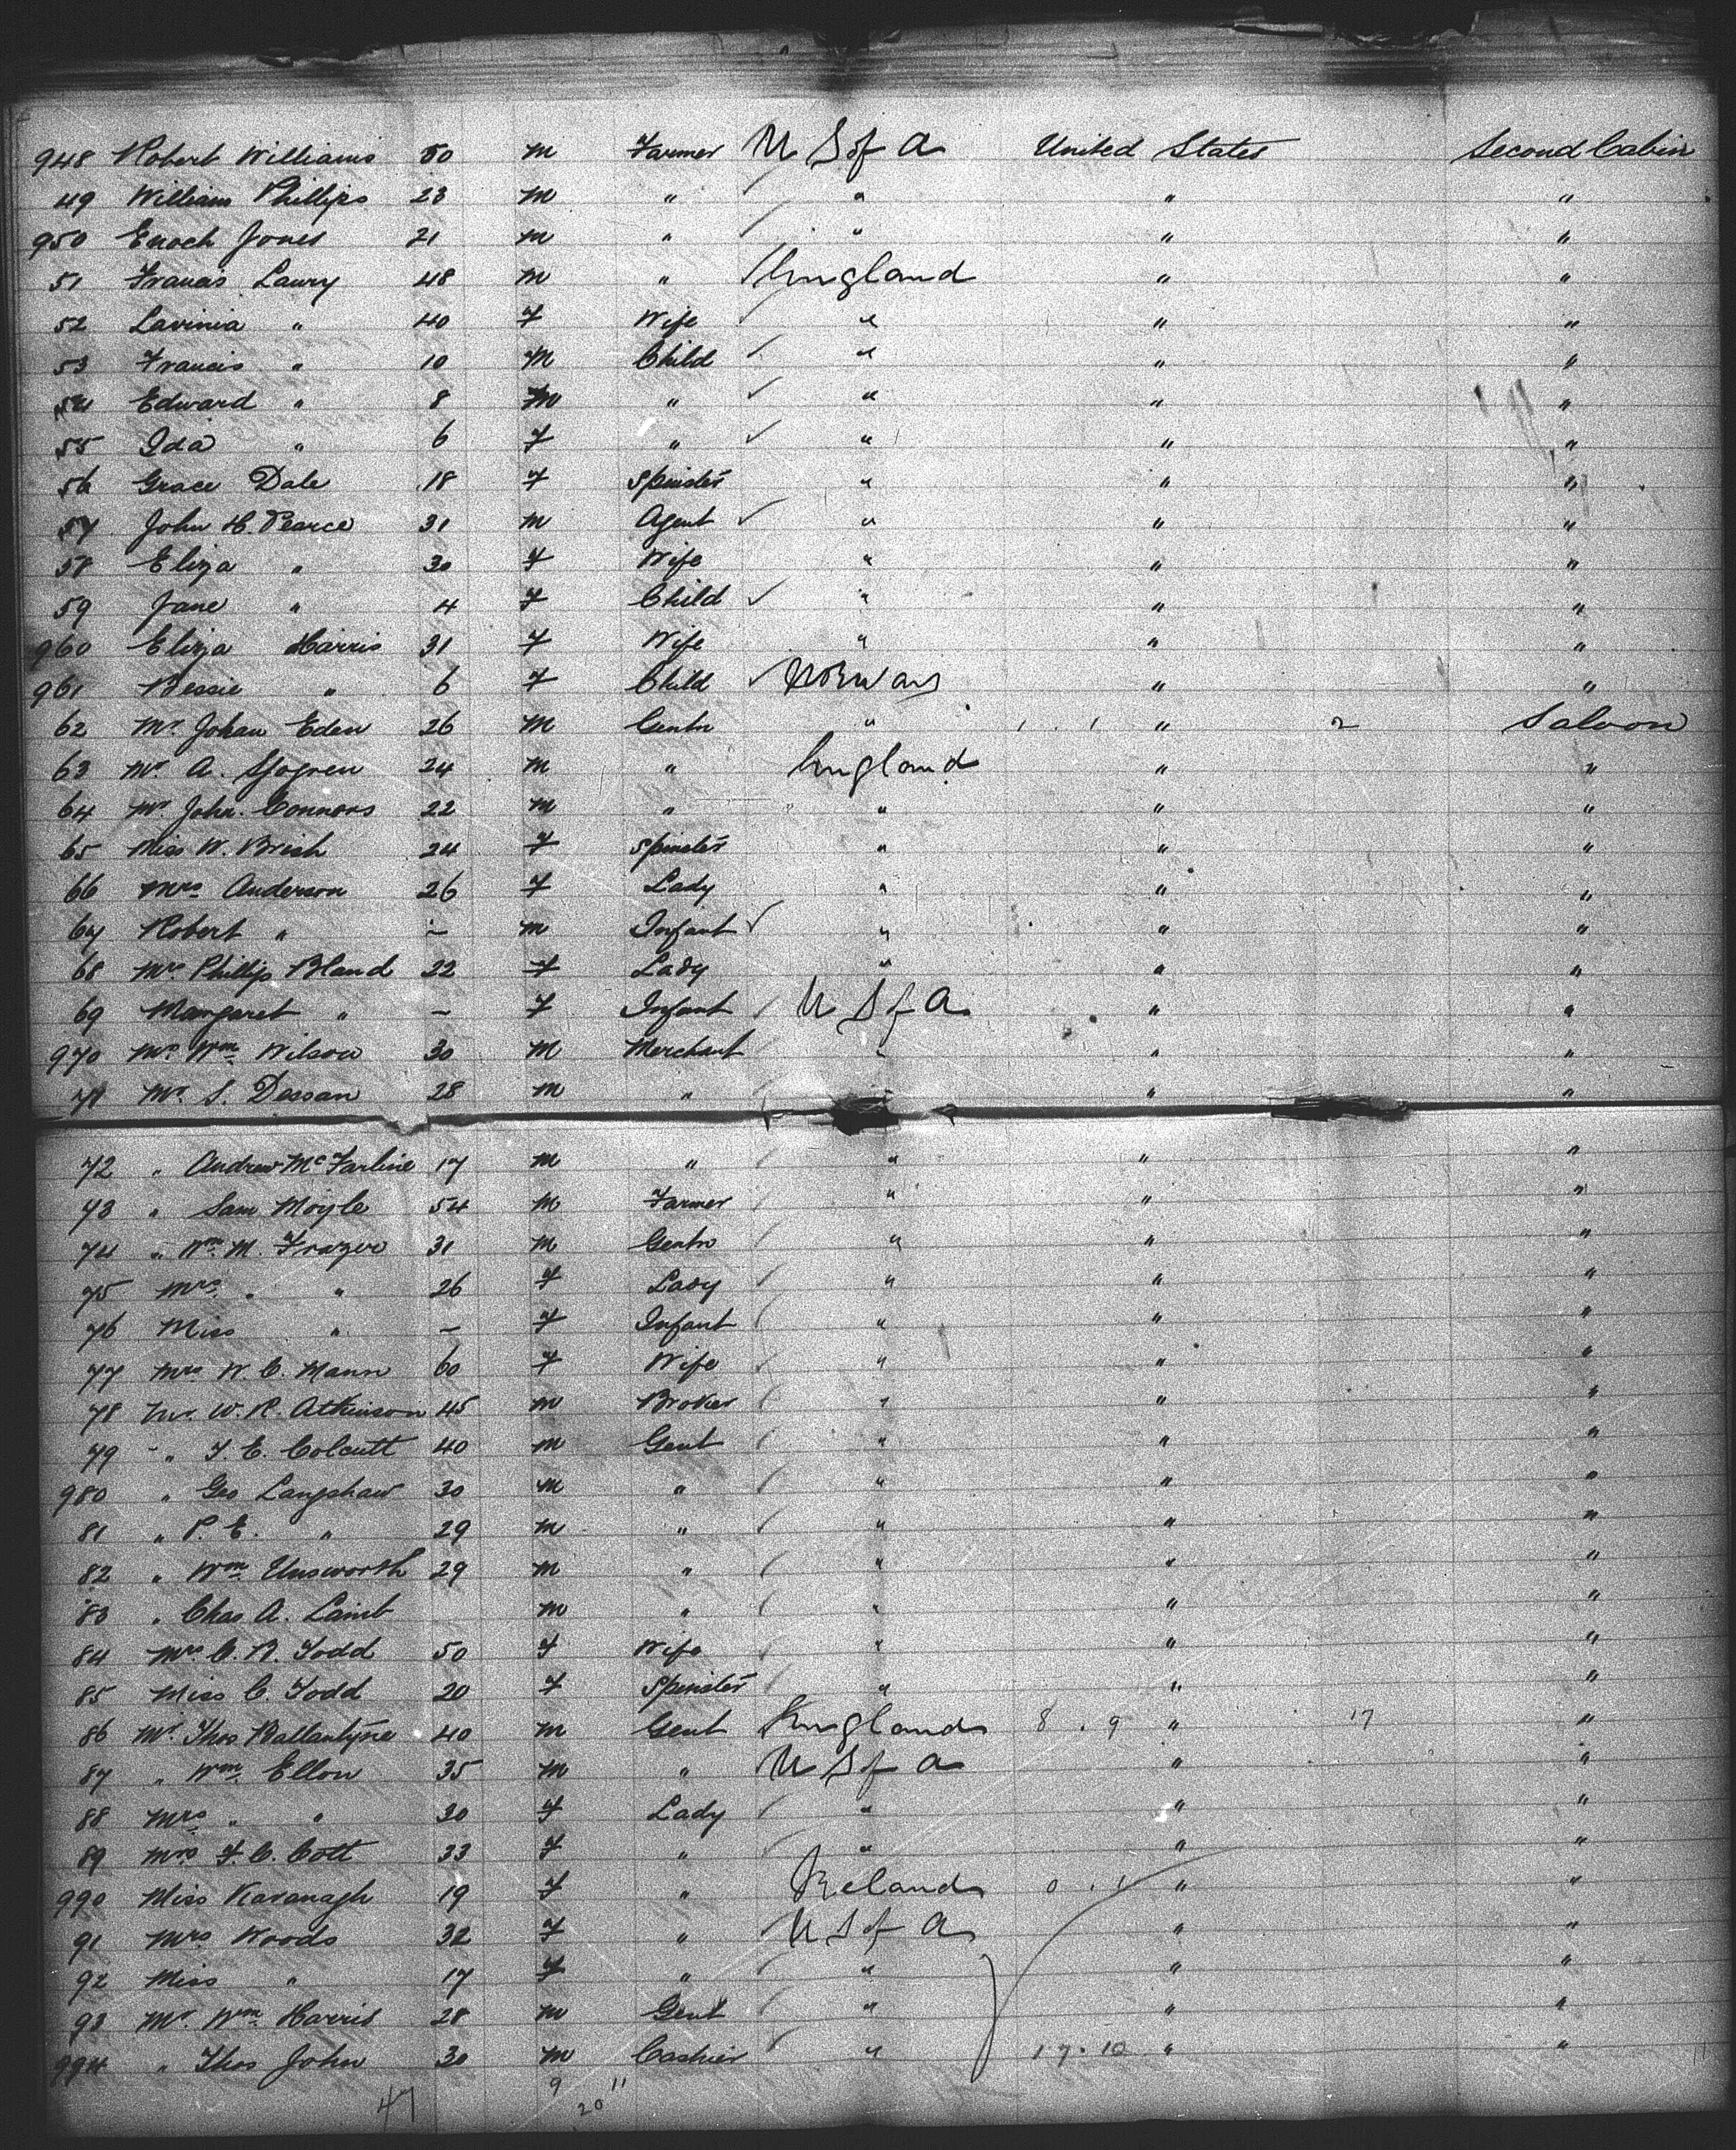 948 Robert Williams 50 m Farmer U S of A United States Second Cabin
49 William Phillips 23 m " " " "
950 Enoch Jones 21 m " " " "
51 Francis Laury 48 m " England " "
52 Lavinia " 40 F Wife " " "
53 Francis " 10 M Child " " "
54 Edward " 8 m " " " "
55 Ida " 6 F " " " "
56 Grace Dale 18 F Spinster " " "
57 John H. Pearce 31 m Agent " " "
58 Eliza " 30 F Wife " " "
59 Jane " 4 F Child " " "
960 Eliza Harris 31 F Wife " " "
961 Bessie " 6 F Child Norway " "
62 Mr. Johan Eden 26 M Gentn " 1 . 1 " 2 Saloon
63 Mr A. Sjogren 24 m " England " "
64 Mr. John. Connors 22 m " " " "
65 Miss W. Brish 24 F Spinster " " "
66 Mrs Anderson 26 F Lady " " "
67 Robert " - m Infant " " "
68 Mrs Phillips Bland 22 F Lady " " "
69 Margaret " - F Infant U S of A " "
970 Mr Wm Wilson 30 M Merchant " " "
71 Mr. S. Dessan 28 m " " "
72 " Andrew McFarline 17 m " " " "
73 " Sam Moyle 54 m Farmer " " "
74 " Wm. M. Frazer 31 m Gentn " " "
75 Mrs. " " 26 F Lady " " "
76 Miss " - F Infant " " "
77 Mrs W. C. Mann 60 F Wife " " "
78 Mr. W. R. Atkinson 45 m Broker " " "
79 " T. E. Colcutt 40 m Gent " " "
980 " Geo Langshaw 30 m " " " "
81 " P. E. " 29 m " " " "
82 " Wm Unsworth 29 m " " " "
83 " Chas A. Lamb m " " " "
84 Mrs C. R. Todd 50 F Wife " " "
85 Miss C. Todd 20 F Spinster " " "
86 Mr. Thos Ballantyne 40 m Gent England 8 . 9 " 17 "
87 " Wm. Ellon 35 m " U S of A " "
88 Mrs " " 30 F Lady " " "
89 Mrs F. C. Cott 33 F " " " "
990 Miss Kavanagh 19 F " Ireland 0 . 1 " "
91 Mrs Woods 32 F " U S of A " "
92 Miss " 17 F " " " "
93 Mr. Wm. Harris 28 m Gent " " "
994 " Thos John 30 m Cashier " 17 . 10 " "
47 9 11
20